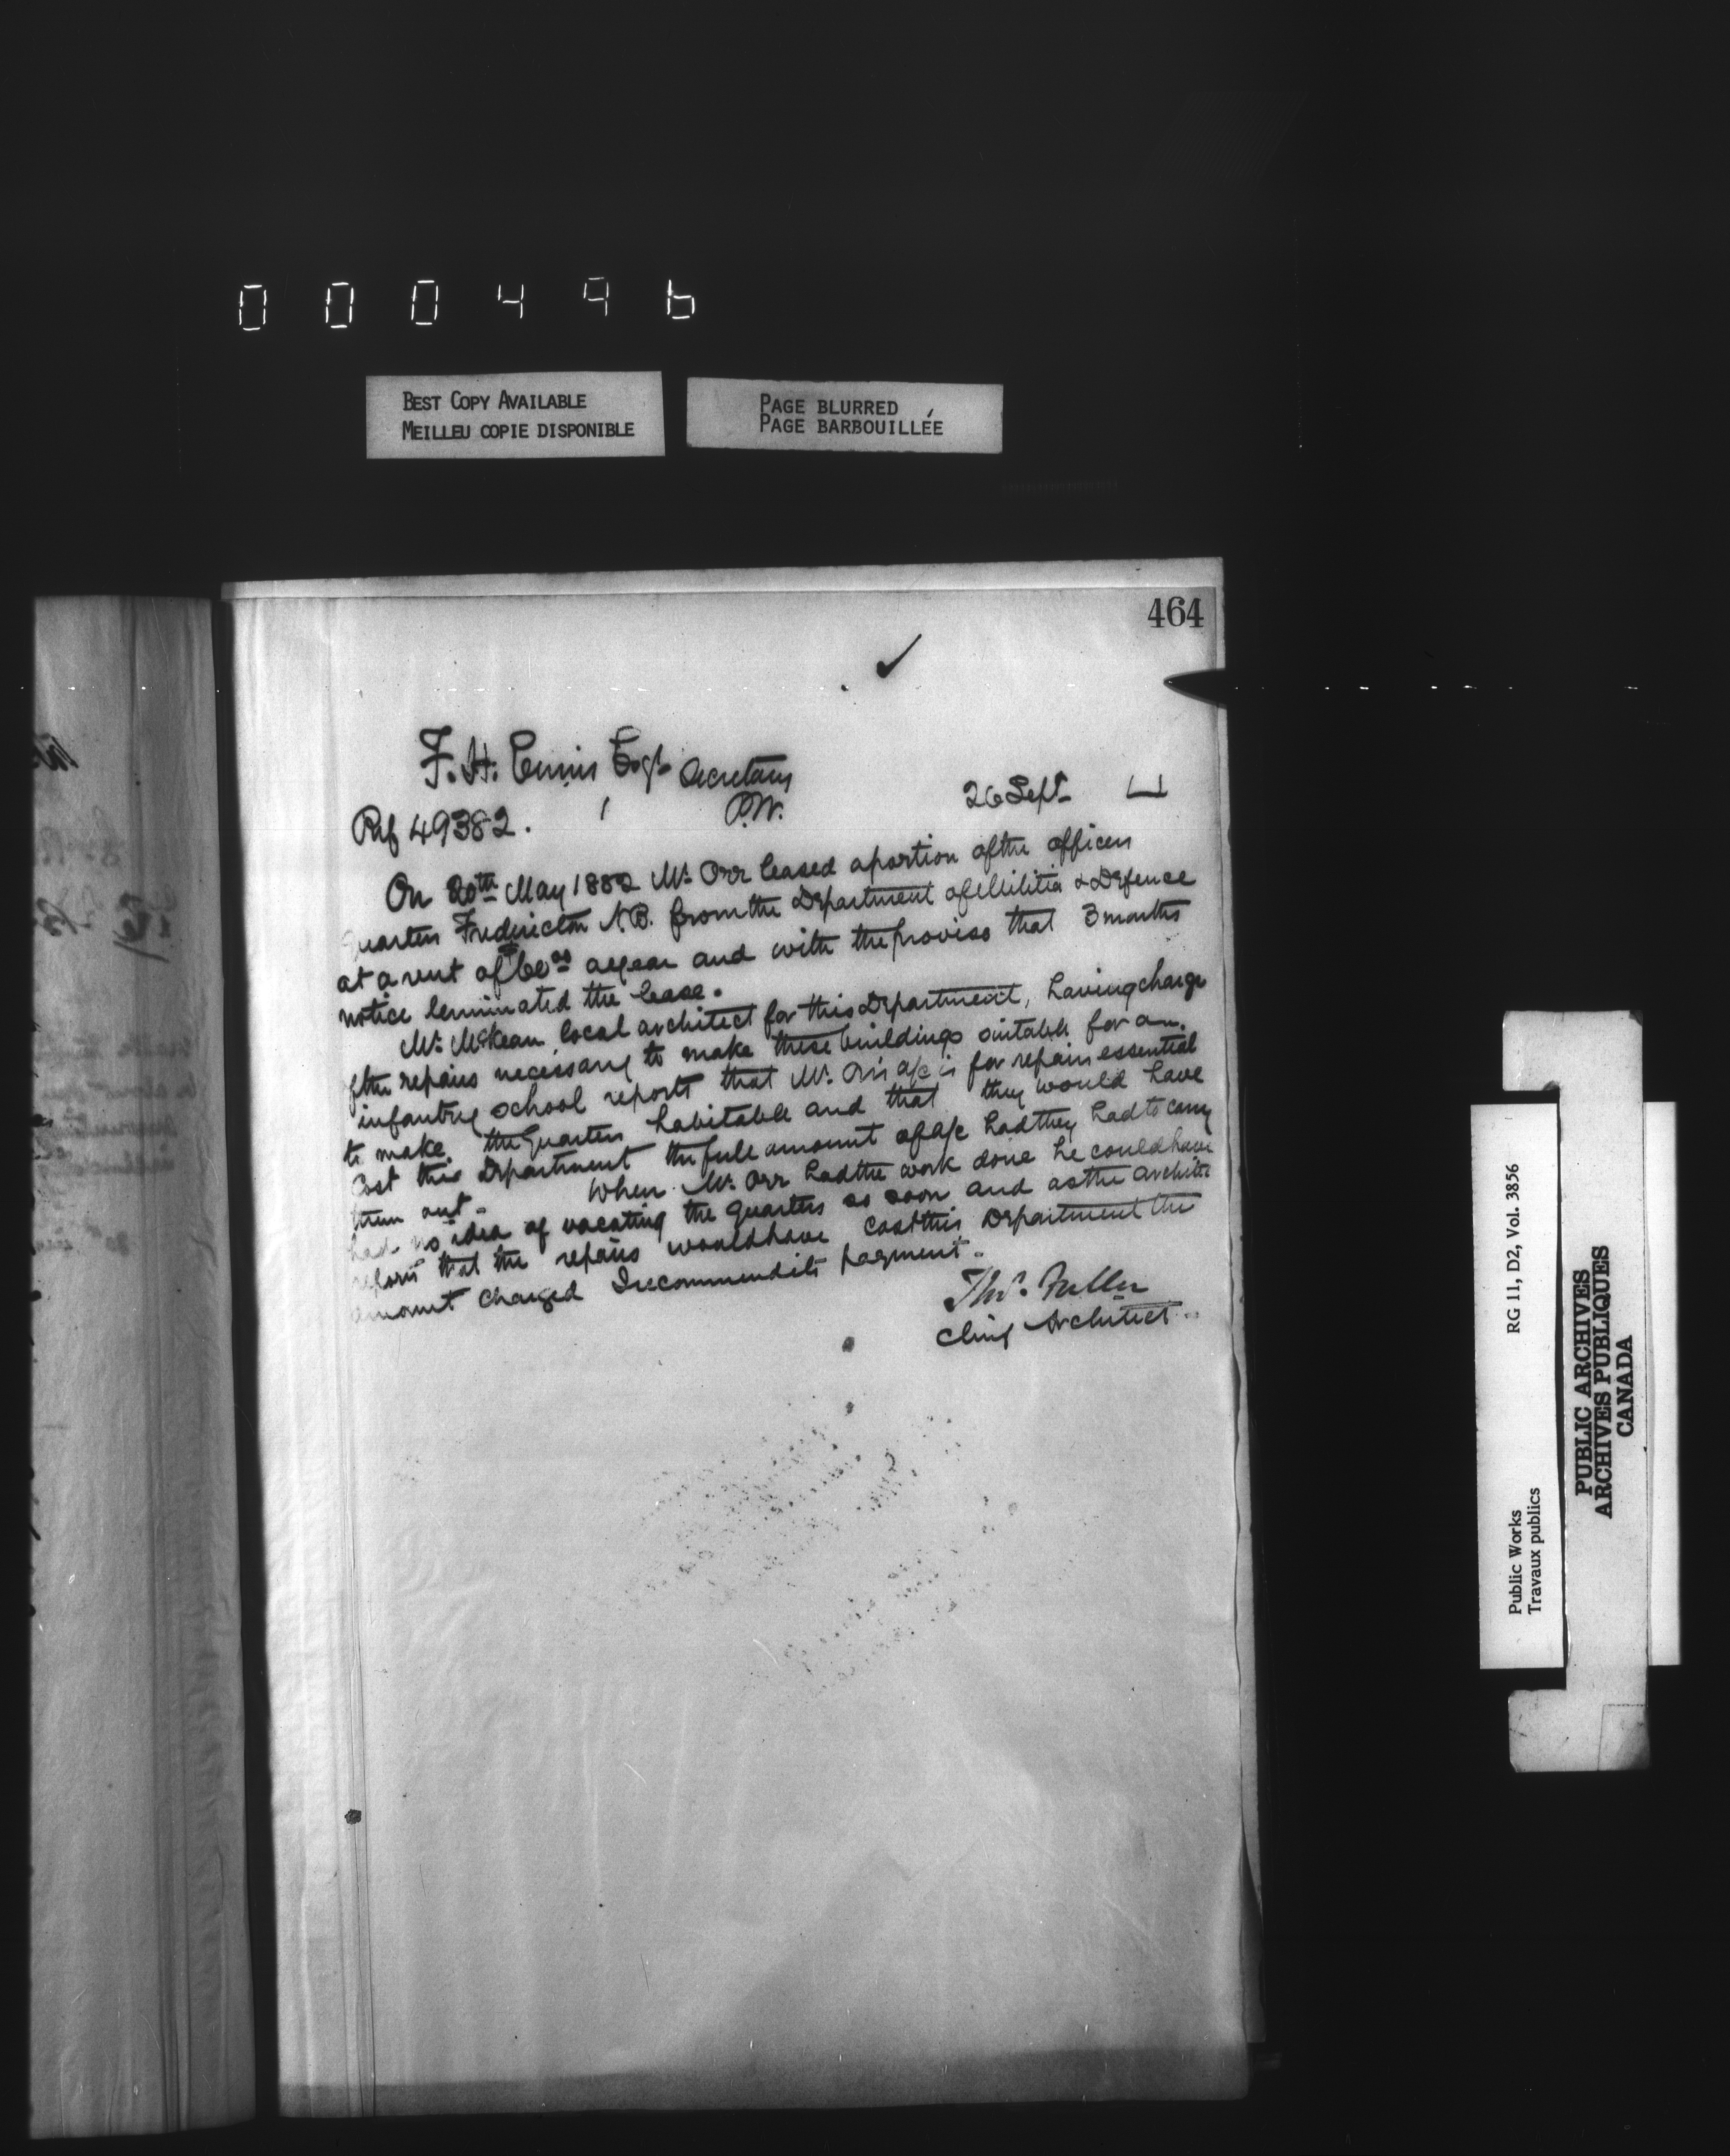 000496
BEST COPY AVAILABLE
MEILLEU COPIE DISPONIBLE
PAGE BLURRED
PAGE BARBOUILLÉE
464
F. H. Ennis Esqr Secretary
P.W.
26 Sept
Ref 49382.
On 20th May 1882 Mr Orr leased a portion of the officers
quarters Fredericton N.B. from the Department of Militia & Defence
at a rent of $60.00 a year and with the proviso that 3 months
notice terminated the lease.
Mr McKean local architect for this Department, having charge
of the repairs necessary to make these buildings suitable for an
infantry school reports that Mr Orr's a/c is for repairs essential
to make the quarters habitable and that they would have
cost this Department the full amount of a/c had they had to carry
them out. When Mr Orr had the work done he could have
had no idea of vacating the quarters so soon and as the architect
reports that the repairs would have cost this Department the
amount charged I recommend its payment.
Thos. Fuller
Chief Architect
Public Works
Travaux publics
RG 11, D2, Vol. 3856
PUBLIC ARCHIVES
ARCHIVES PUBLIQUES
CANADA